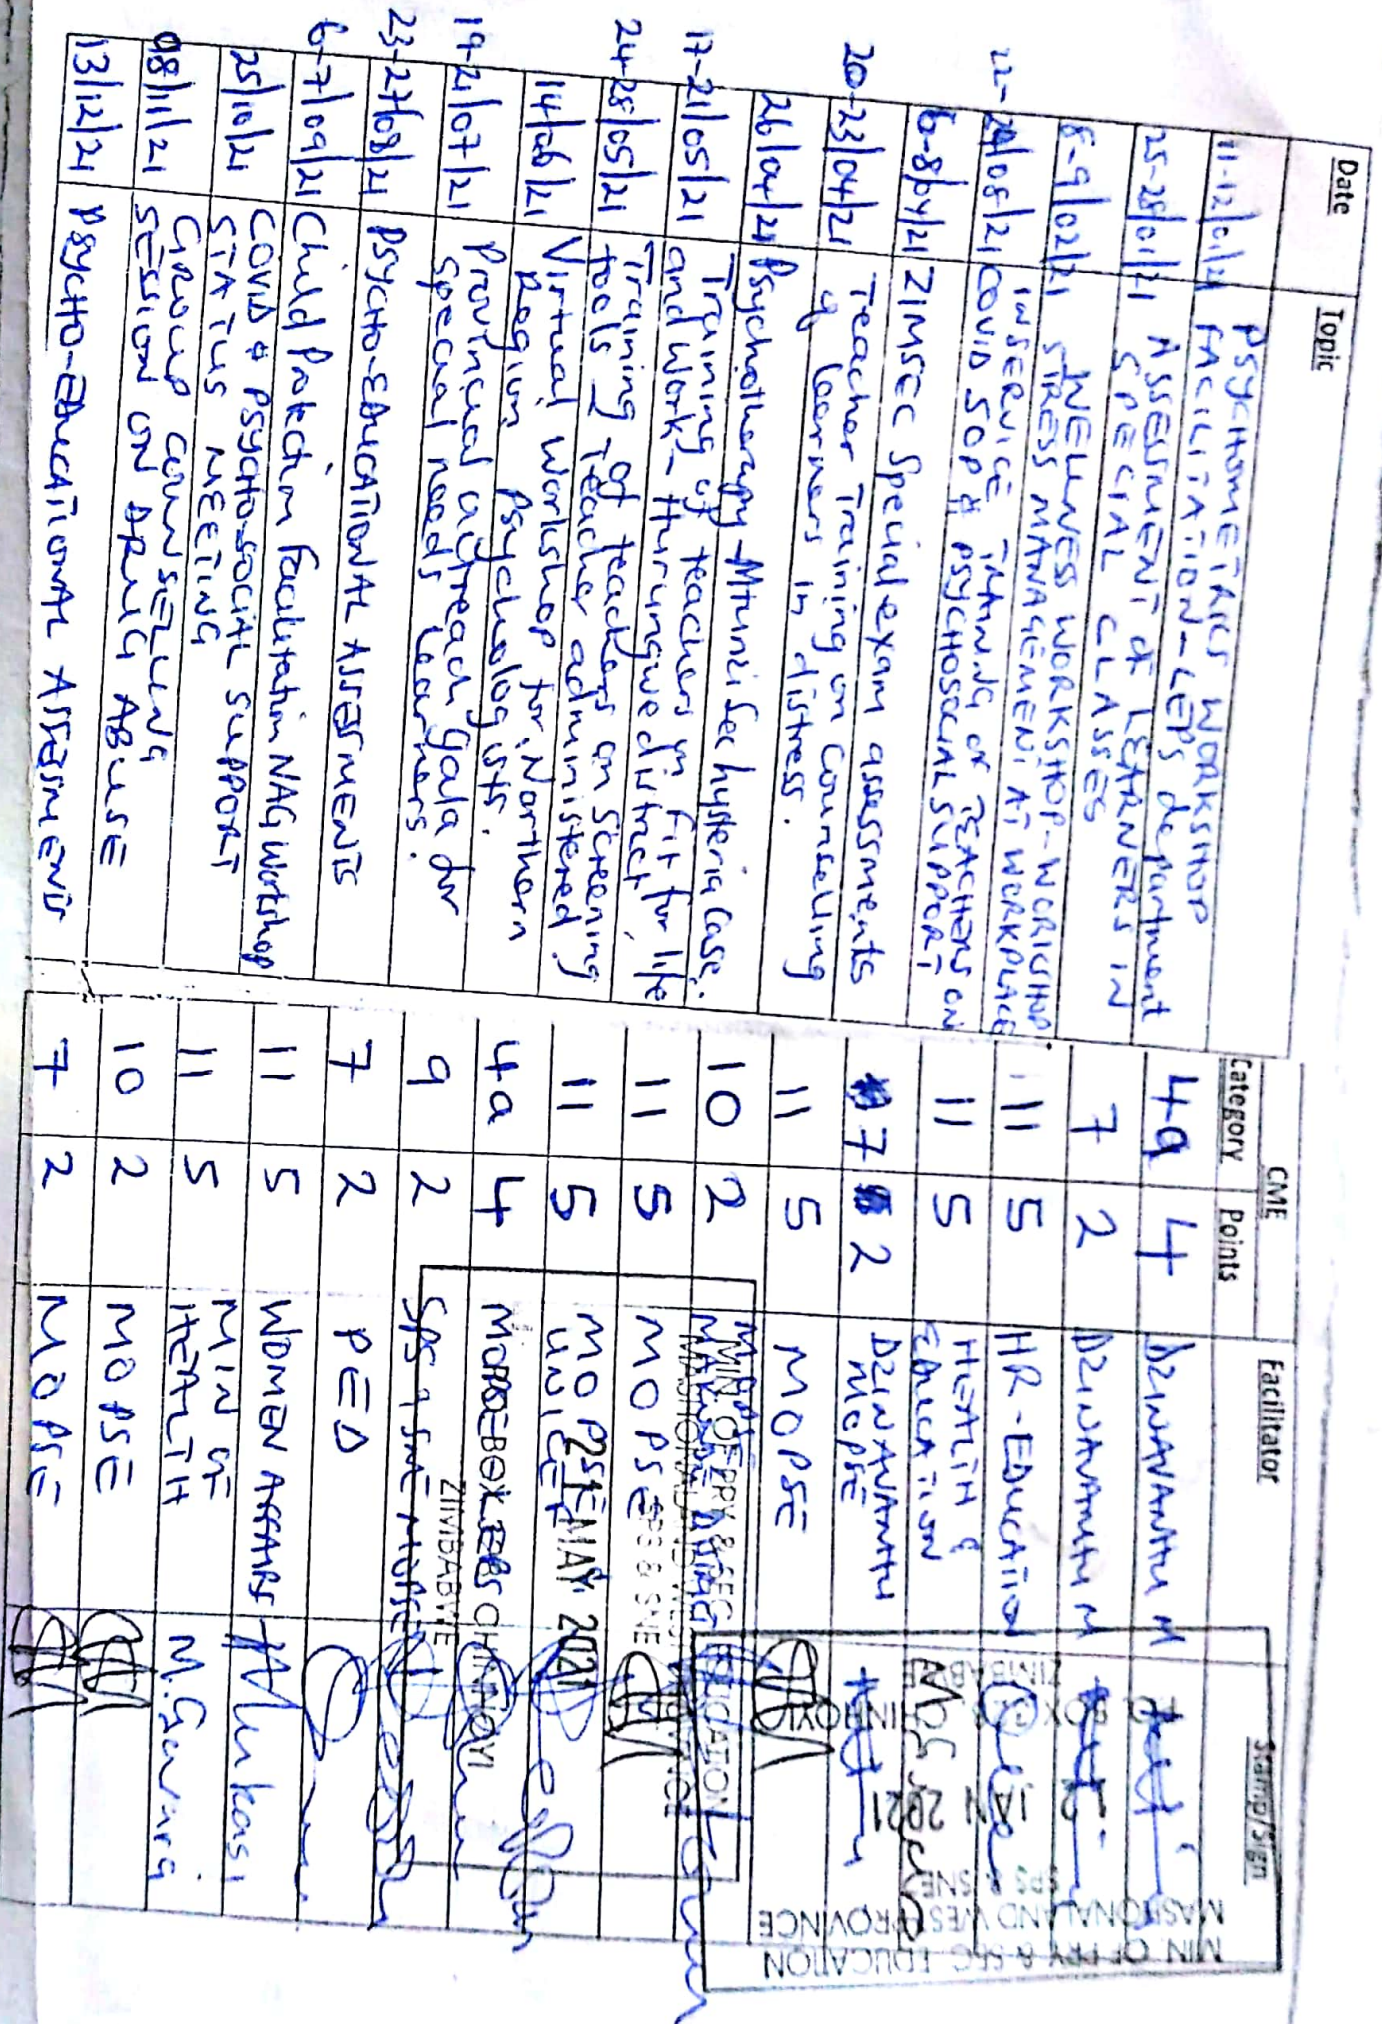 Date Topic CME Facilitator Stamp/Sign
Category Points
11-12/01/21 PSYCHOMETRICS WORKSHOP
FACILITATION-LEPS department 4a 4 DZINAVANHU M
25-28/01/21 ASSESSMENT OF LEARNERS IN
SPECIAL CLASSES 7 2 DZINAVANHU M
8-9/02/21 WELLNESS WORKSHOP-WORKSHOP
STRESS MANAGEMENT AT WORKPLACE 11 5 HR-EDUCATION
22-24/03/21 INSERVICE TRAINING OF TEACHERS ON
COVID SOP & PSYCHOSOCIAL SUPPORT 11 5 HEALTH &
EDUCATION
6-8/04/21 ZIMSEC Special exam assessments 7 2 DZINAVANHU
MOPSE
20-23/04/21 Teacher Training on Counselling
of learners in distress. 11 5 MOPSE
26/04/21 Psychotherapy-Mtunzi Sec hysteria case. 10 2
17-21/05/21 Training of teachers in fit for life
and work- Hurungwe district. 11 5 MOPSE
24-28/05/21 Training of teachers on Screening
tools - Teacher administered 11 5 MOPSE
UNICEF
14/06/21 Virtual Workshop for Northern
Region Psychologists. 4a 4
19-21/07/21 Provincial outreach gala for
Special needs learners. 9 2 SPS & SNE MOPSE
23-27/08/21 PSYCHO-EDUCATIONAL ASSESSMENTS 7 2 PED
6-7/09/21 Child Protection Facilitation NAG Workshop 11 5 WOMEN AFFAIRS
25/10/21 COVID & PSYCHO-SOCIAL SUPPORT
STATUS MEETING 11 5 MIN OF
HEALTH
08/11/21 GROUP COUNSELLING
SESSION ON DRUG ABUSE 10 2 MOPSE
13/12/21 PSYCHO-EDUCATIONAL ASSESSMENTS 7 2 MOPSE
MIN. OF PRY & SEC. EDUCATION
MASHONALAND WEST PROVINCE
SPS & SNE
JAN 2021
BOX CHINHOYI
ZIMBABWE
MIN. OF PRY & SEC EDUCATION
MASHONALAND WEST PROVINCE
SPS & SNE
25 MAY 2021
CHINHOYI
ZIMBABWE